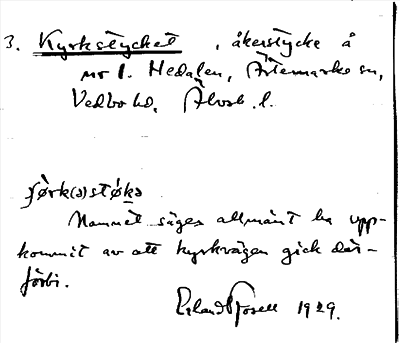 3. Kyrkstycket, åkerstycke å
nr 1. Hedalen, Ärtemarks sn,
Vedbo hd, Älvsb. l.
Namnet säges allmänt ha upp-
kommit av att kyrkvägen gick där-
förbi.
Erland Rosell 1929.